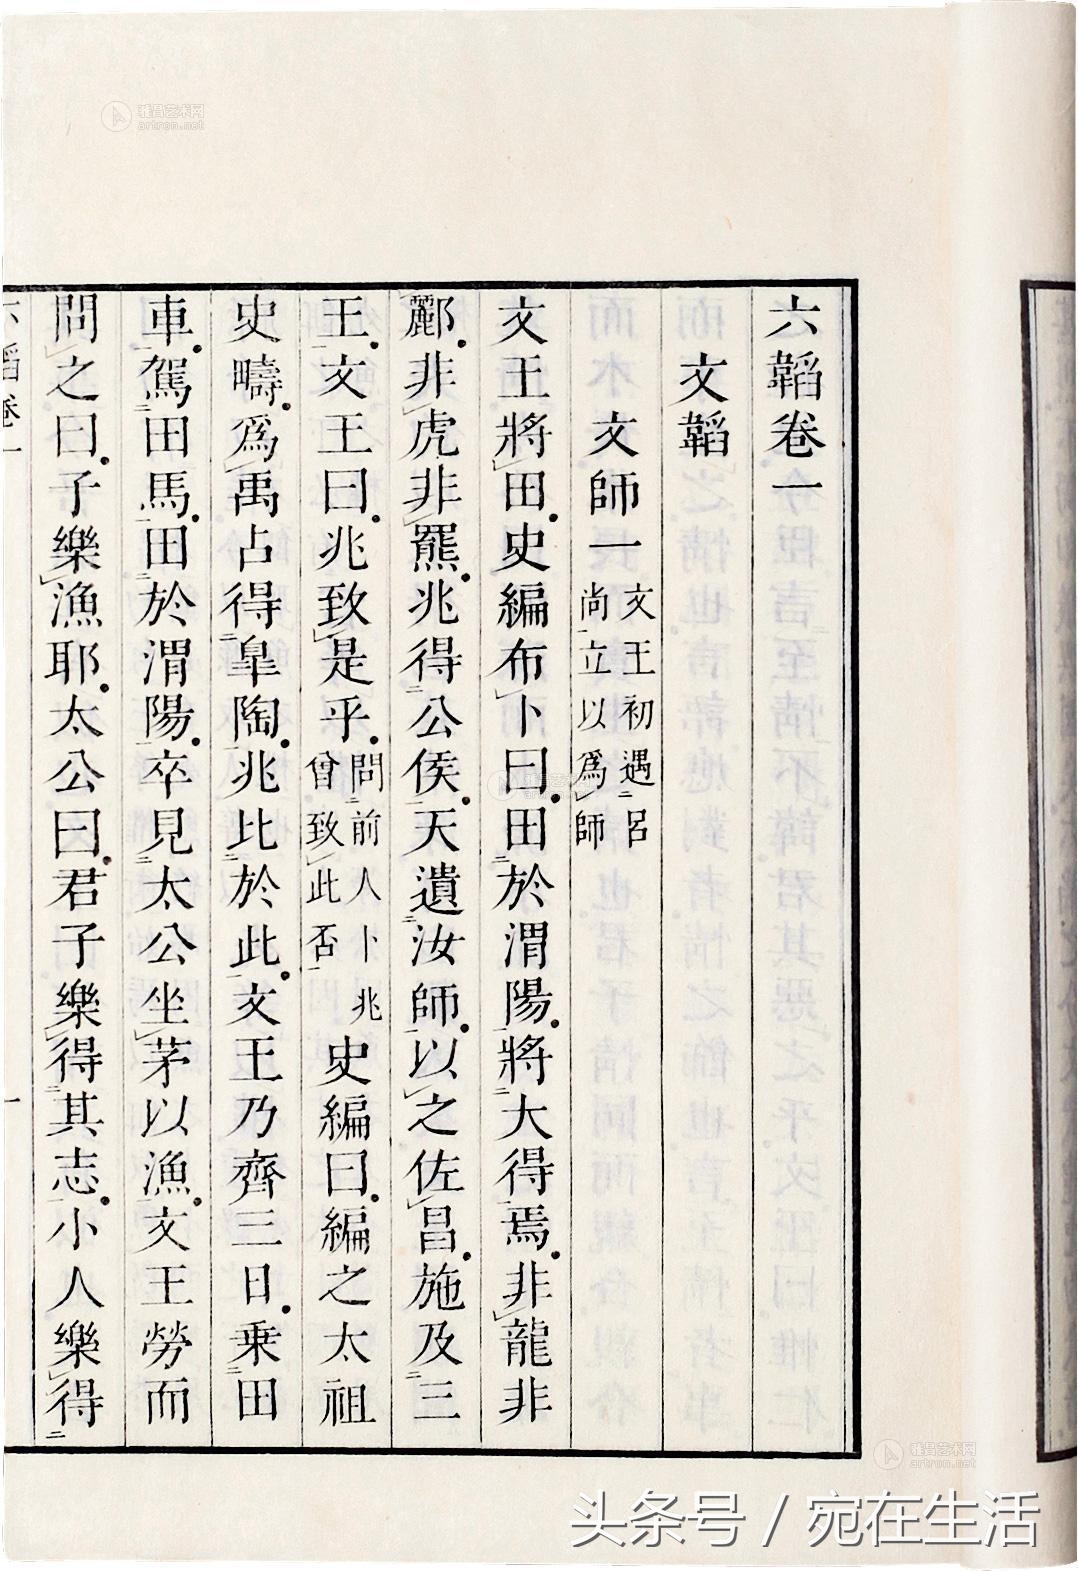 六韜卷一
文韜
文師一文王初遇呂尚立以爲師
文王將田史編布卜曰田於渭陽將大得焉非龍非
彲非虎非羆兆得公侯天遺汝師以之佐昌施及三
王文王曰兆致是乎問前人卜兆曾致此否史編曰編之太祖
史疇爲禹占得皐陶兆比於此文王乃齊三日乗田
車駕田馬田於渭陽卒見太公坐茅以漁文王勞而
問之曰子樂漁耶太公曰君子樂得其志小人樂得
六韜卷一
一
雅昌艺术网
artron.net
雅昌艺术网
artron.net
头条号 / 宛在生活